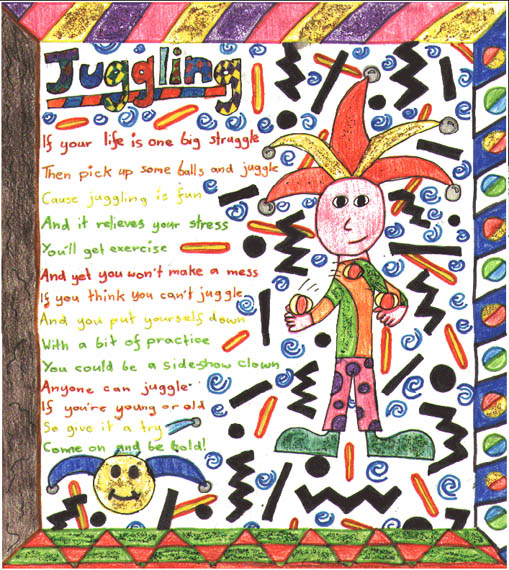 Juggling
If your life is one big struggle
Then pick up some balls and juggle
Cause juggling is fun
And it relieves your stress
You'll get exercise
And yet you won't make a mess
If you think you can't juggle
And you put yourself down
With a bit of practice
You could be a sideshow clown
Anyone can juggle
If you're young or old
So give it a try
Come on and be bold!